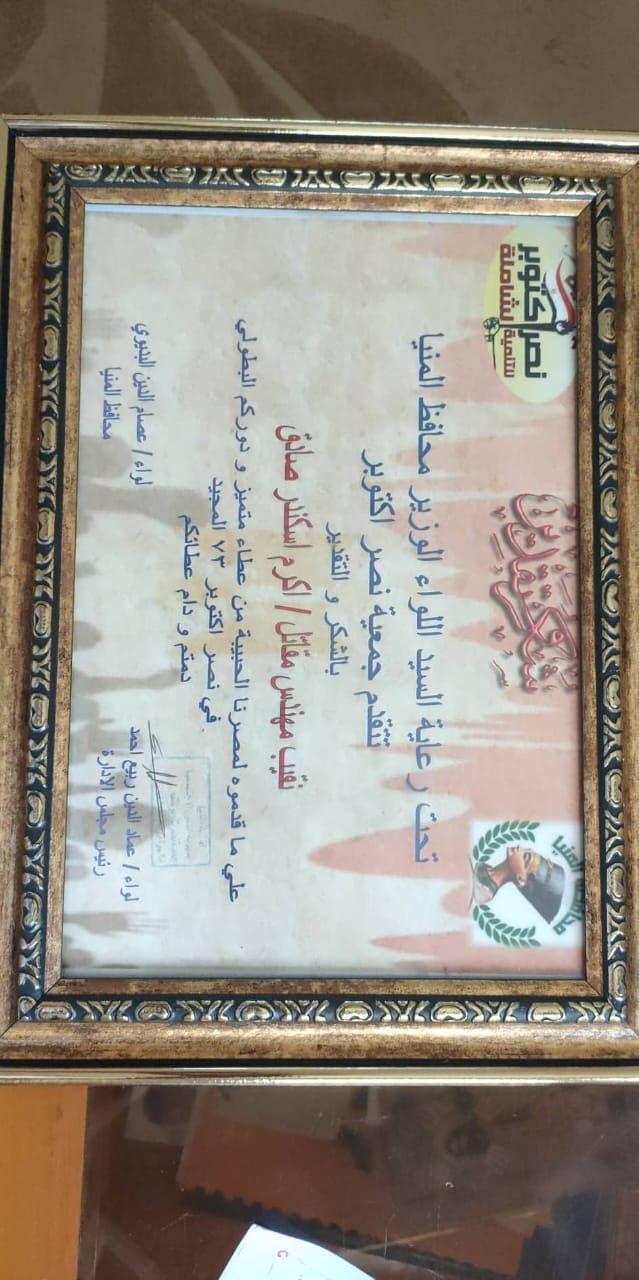 نصر اكتوبر
للتنمية الشاملة
شهادة تقدير
محافظة المنيا
تحت رعاية السيد اللواء الوزير محافظ المنيا
تتقدم جمعية نصر اكتوبر
بالشكر و التقدير
نقيب مهندس مقاتل / اكرم اسكندر صادق
علي ما قدموه لمصرنا الحبيبة من عطاء متميز و دوركم البطولي
في نصر اكتوبر ٧٣ المجيد
دمتم و دام عطائكم
لواء / عماد الدين ربيع احمد
رئيس مجلس الادارة
لواء / عصام الدين البديوي
محافظ المنيا